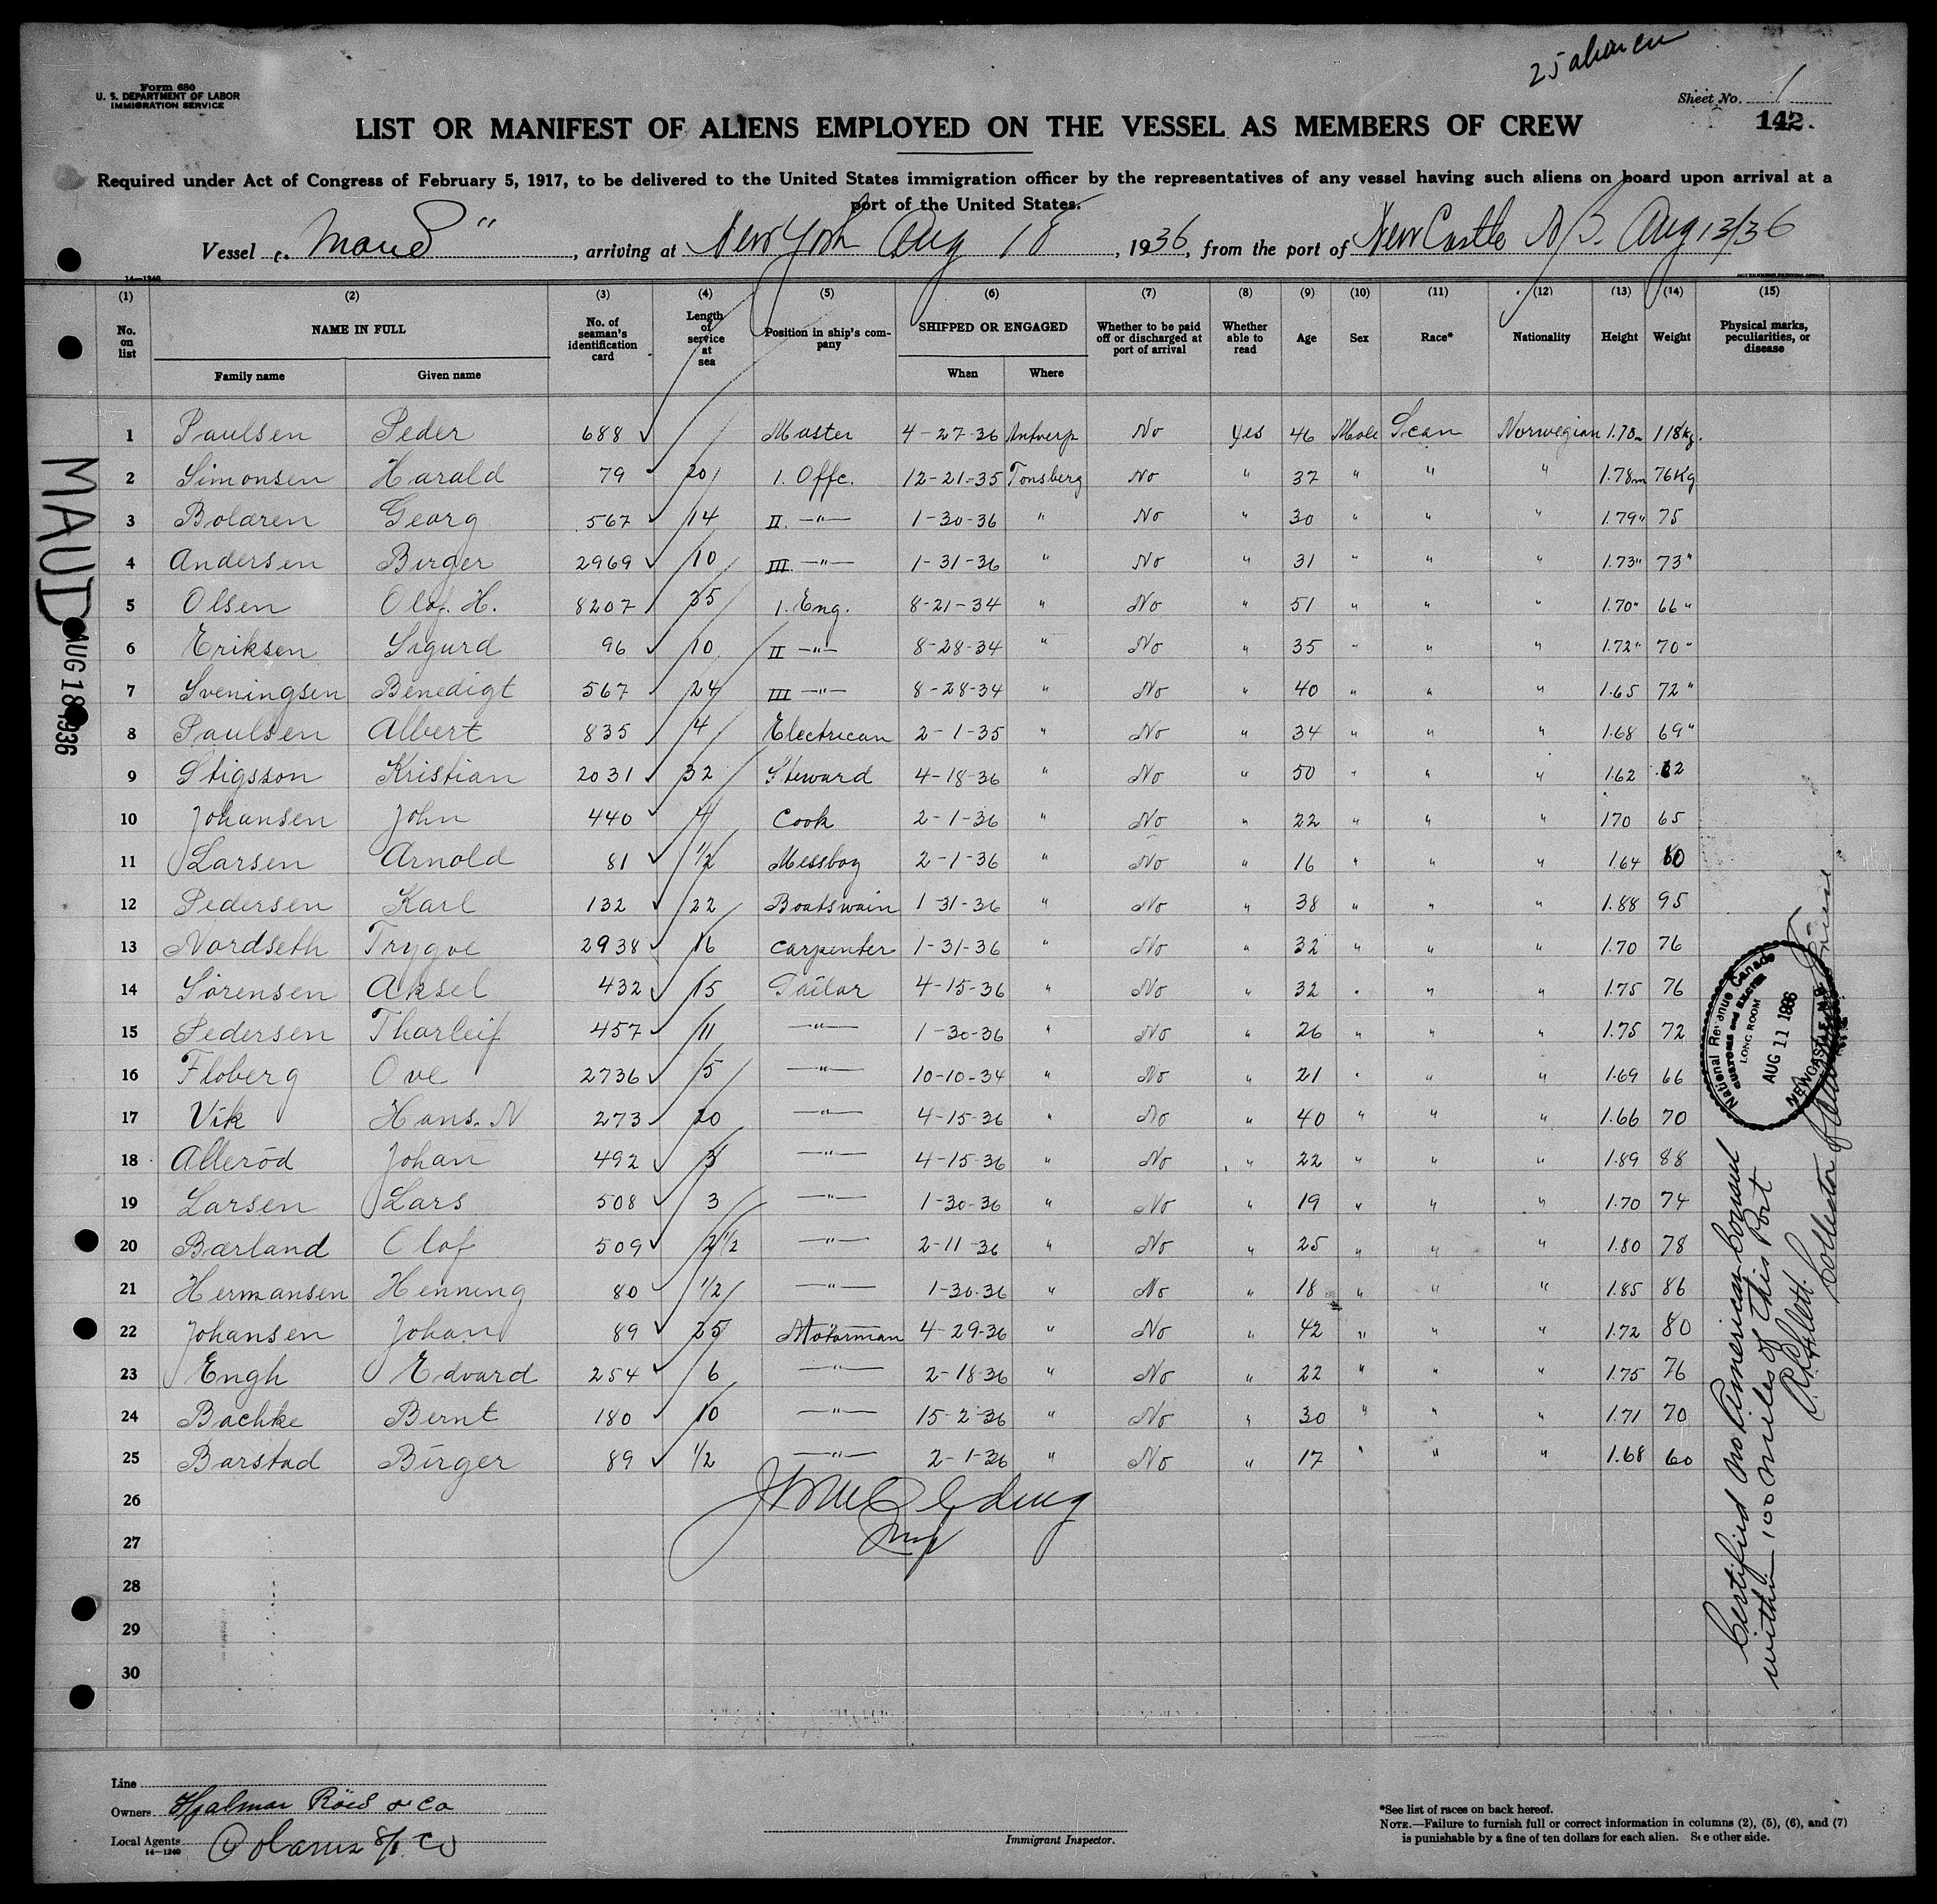 25 aliens
Form 680
U. S. DEPARTMENT OF LABOR
IMMIGRATION SERVICE
Sheet No. 1
142.
LIST OR MANIFEST OF ALIENS EMPLOYED ON THE VESSEL AS MEMBERS OF CREW
Required under Act of Congress of February 5, 1917, to be delivered to the United States immigration officer by the representatives of any vessel having such aliens on board upon arrival at a
port of the United States.
Vessel "Maud", arriving at New York Aug 18, 1936, from the port of NewCastle N/B. Aug 13/36
14—1240
GOVERNMENT PRINTING OFFICE
(1) (2) (3) (4) (5) (6) (7) (8) (9) (10) (11) (12) (13) (14) (15)
No. on list NAME IN FULL No. of seaman's identification card Length of service at sea Position in ship's company SHIPPED OR ENGAGED Whether to be paid off or discharged at port of arrival Whether able to read Age Sex Race* Nationality Height Weight Physical marks, peculiarities, or disease
Family name Given name When Where
1 Paulsen Peder 688 ✓ Master 4-27-36 Antverp No Yes 46 Male Scan Norwegian 1.78m 118kg.
2 Simonsen Harald 79 ✓ 20 1. Offc. 12-21-35 Tonsberg No " 37 " " " 1.78m 76Kg
3 Bolæren Georg 567 ✓ 14 II. —"— 1-30-36 " No " 30 " " " 1.79" 75
4 Andersen Birger 2969 ✓ 10 III. —"— 1-31-36 " No " 31 " " " 1.73" 73"
5 Olsen Olaf. H. 8207 ✓ 35 1. Eng. 8-21-34 " No " 51 " " " 1.70" 66"
6 Eriksen Sigurd 96 ✓ 10 II —"— 8-28-34 " No " 35 " " " 1.72" 70"
7 Sveningsen Benedigt 567 ✓ 24 III —"— 8-28-34 " No " 40 " " " 1.65 72"
8 Paulsen Albert 835 ✓ 4 Electrican 2-1-35 " No " 34 " " " 1.68 69"
9 Stigsson Kristian 2031 ✓ 32 Steward 4-18-36 " No " 50 " " " 1.62 62
10 Johansen John 440 ✓ 4 Cook 2-1-36 " No " 22 " " " 170 65
11 Larsen Arnold 81 ✓ 1/2 Messboy 2-1-36 " No " 16 " " " 1.64 60
12 Pedersen Karl 132 ✓ 22 Boatswain 1-31-36 " No " 38 " " " 1.88 95
13 Nordseth Trygve 2938 ✓ 16 Carpenter 1-31-36 " No " 32 " " " 1.70 76
14 Sørensen Aksel 432 ✓ 15 Sailor 4-15-36 " No " 32 " " " 1.75 76
15 Pedersen Thorleif 457 ✓ 11 —"— 1-30-36 " No " 26 " " " 1.75 72
16 Floberg Ove 2736 ✓ 5 —"— 10-10-34 " No " 21 " " " 1.69 66
17 Vik Hans. N 273 ✓ 20 —"— 4-15-36 " No " 40 " " " 1.66 70
18 Alleröd Johan 492 ✓ 3 —"— 4-15-36 " No " 22 " " " 1.89 88
19 Larsen Lars 508 ✓ 3 —"— 1-30-36 " No " 19 " " " 1.70 74
20 Bærland Olaf 509 ✓ 2 1/2 —"— 2-11-36 " No " 25 " " " 1.80 78
21 Hermansen Henning 80 ✓ 1/2 —"— 1-30-36 " No " 18 " " " 1.85 86
22 Johansen Johan 89 ✓ 25 Motorman 4-29-36 " No " 42 " " " 1.72 80
23 Engh Edvard 254 ✓ 6 —"— 2-18-36 " No " 22 " " " 1.75 76
24 Bachke Bernt 180 ✓ 10 —"— 15-2-36 " No " 30 " " " 1.71 70
25 Barstad Birger 89 ✓ 1/2 —"— 2-1-36 " No " 17 " " " 1.68 60
26
27
28
29
30
MAUD
AUG 18 1936
National Revenue Canada
CUSTOMS and EXCISE
LONG ROOM
AUG 11 1936
NEWCASTLE, N.B.
Certified no American Consul
within 100 miles of this Port
Collector
Line
Owners Hjalmar Röed & Co
Local Agents
14—1240
Immigrant Inspector.
*See list of races on back hereof.
NOTE.—Failure to furnish full or correct information in columns (2), (5), (6), and (7)
is punishable by a fine of ten dollars for each alien. See other side.